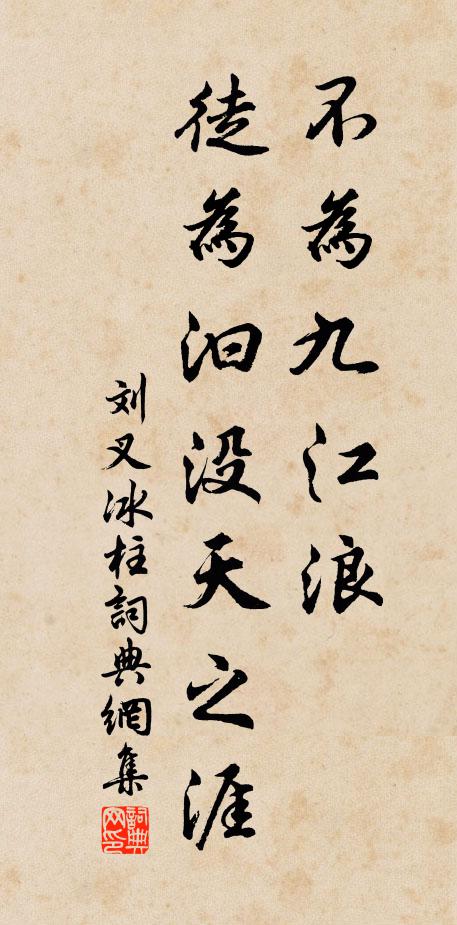 不為九江浪
徒為汩没天之涯
刘叉冰柱詞典網集
詞典網印